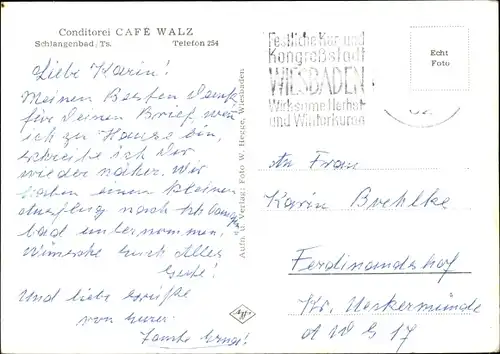 Conditorei CAFÉ WALZ
Schlangenbad/Ts. Telefon 254
Liebe Karin!
Meinen Besten Dank
für Deinen Brief, wen
ich zu Hause bin,
schreibe ich Dir
wieder näher. Wir
haben einen kleinen
Ausflug nach Schlangen
bad unternommen.
Wünsche Euch Alles
Gute!
Und liebe Grüße
von Eurer
Tante Erna!
Aufn. u. Verlag: Foto W. Herge, Wiesbaden
Festliche Kur- und
Kongreßstadt
WIESBADEN
Wirksame Herbst-
und Winterkuren
Echt
Foto
An Frau
Karin Brehlke
Ferdinandshof
Kr. Ueckermünde